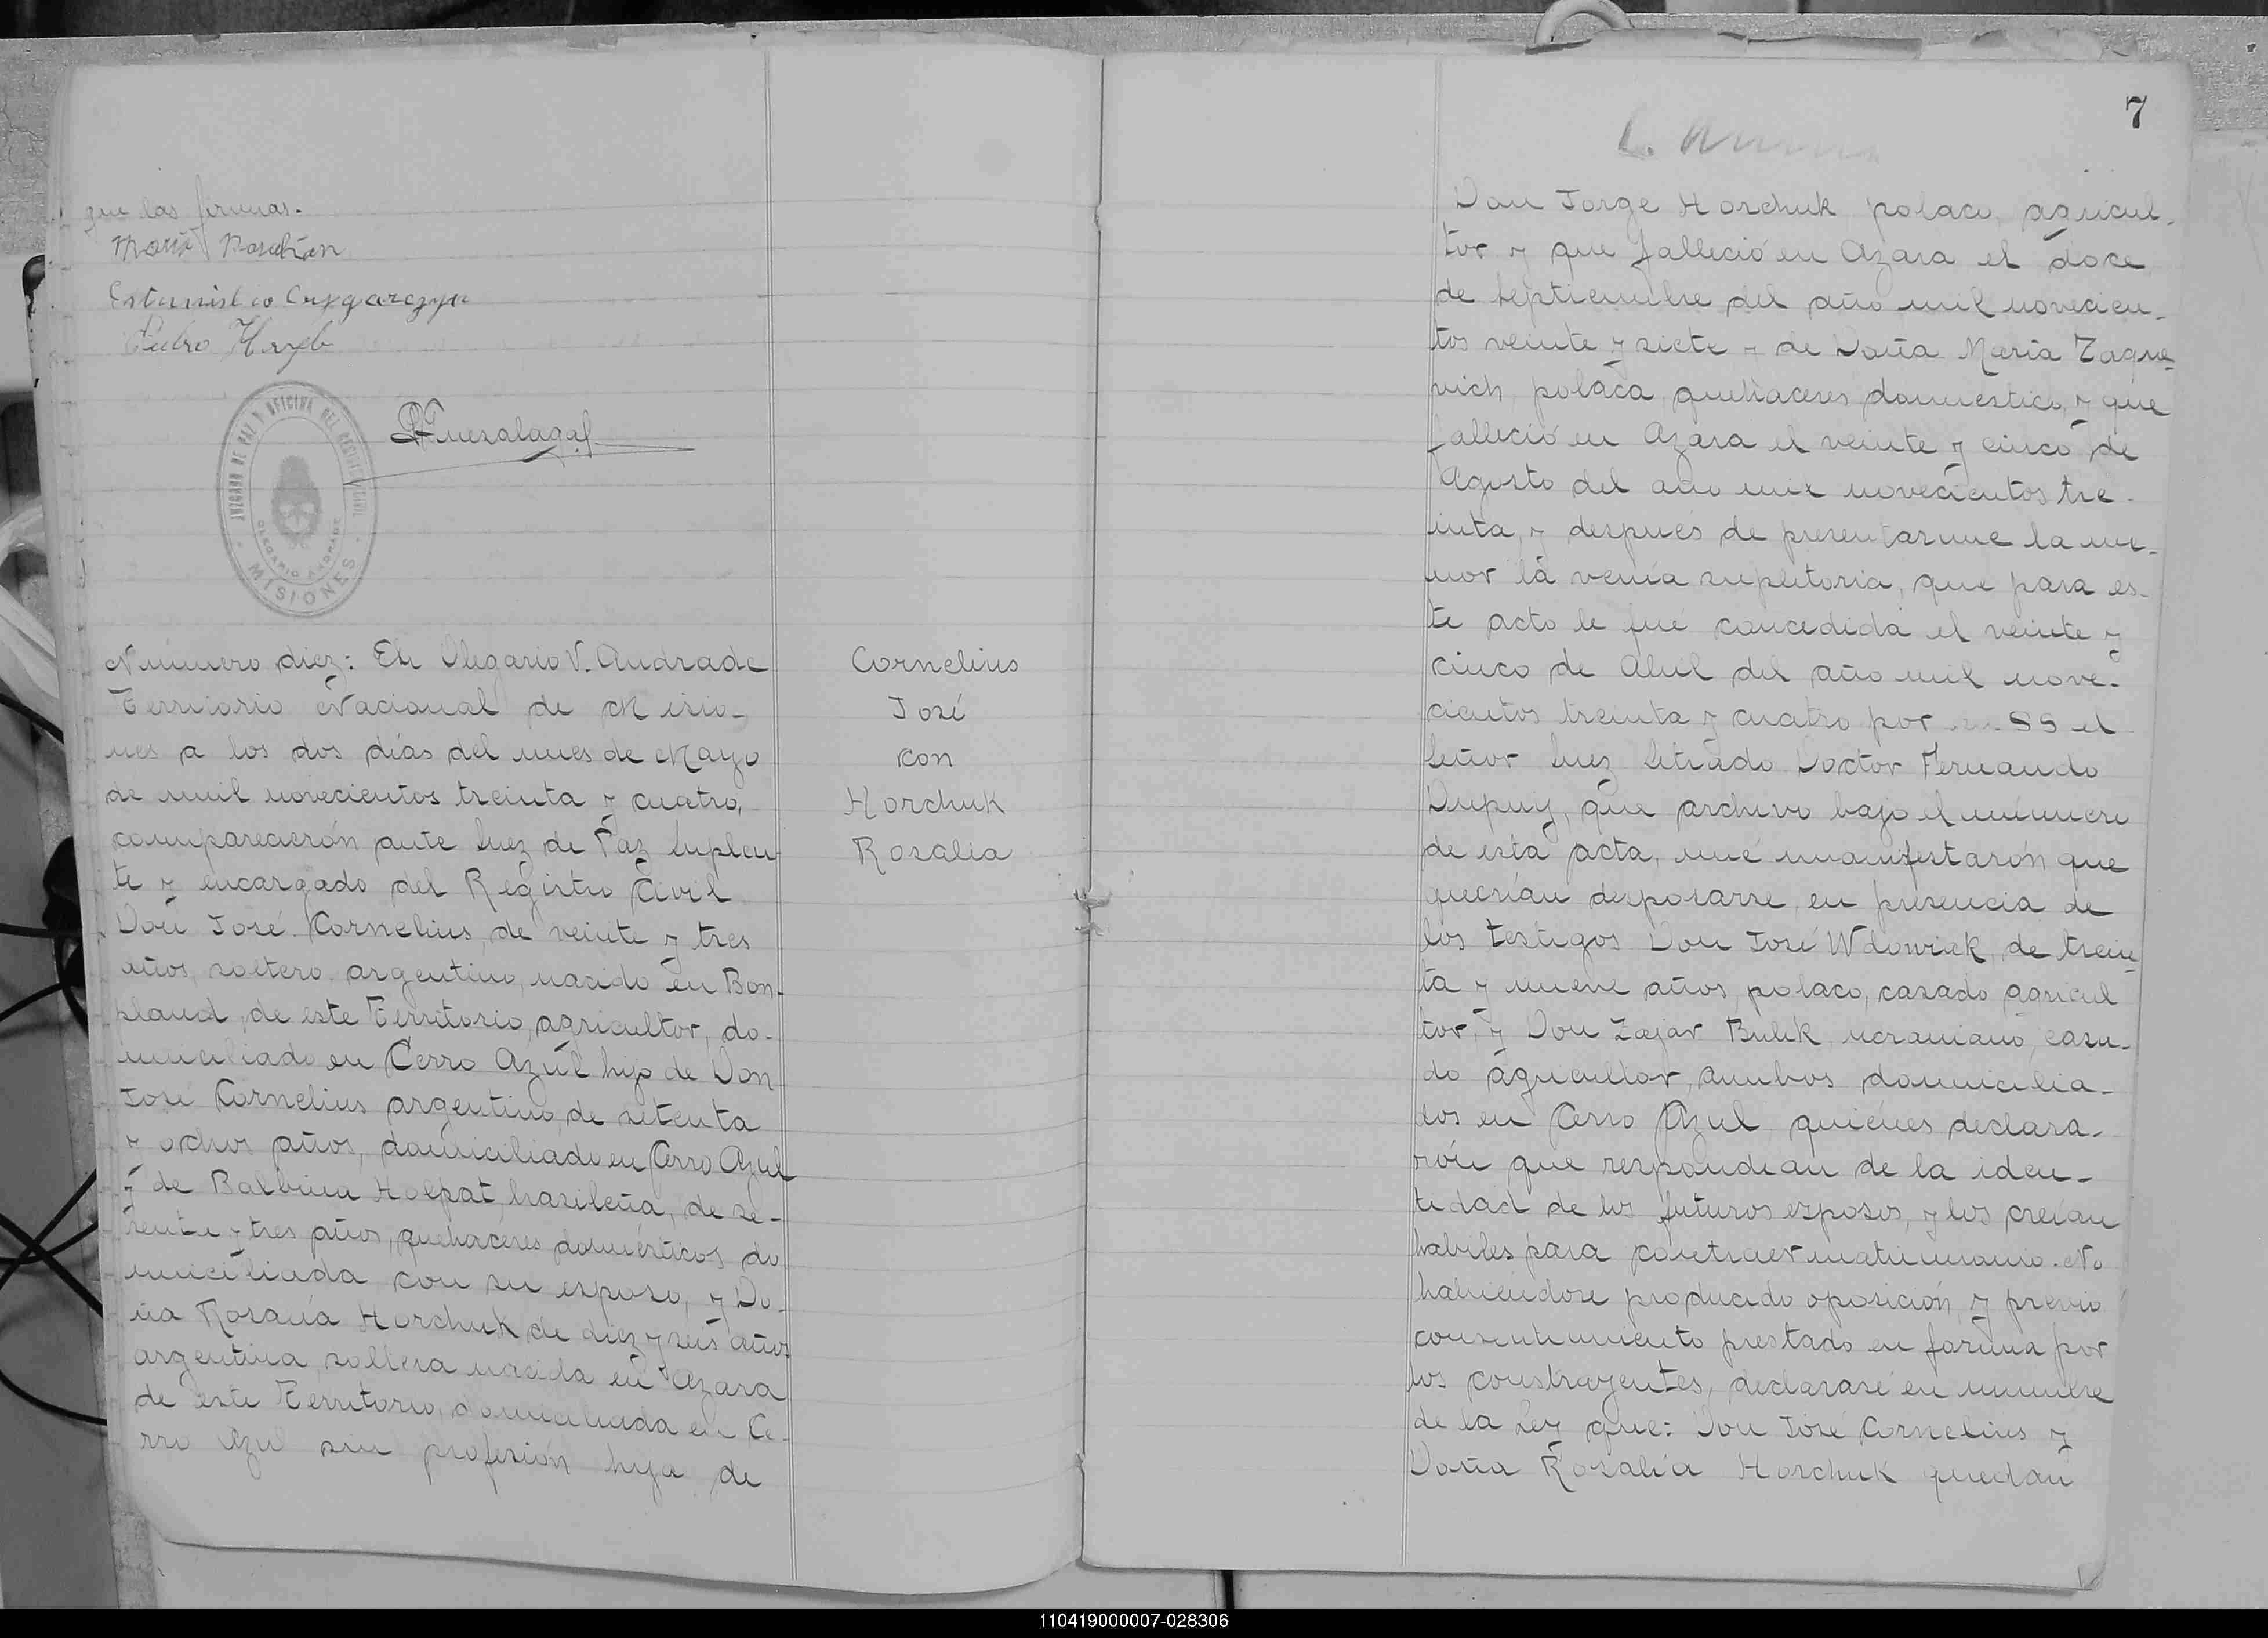 que las firmas.
Estanislao
Pedro
JUZGADO DE PAZ Y OFICINA DEL REGISTRO CIVIL
OLEGARIO ANDRADE
MISIONES
Número diez: En Olegario V. Andrade
Territorio Nacional de Misio-
nes a los dos días del mes de Mayo
de mil novecientos treinta y cuatro,
comparecierón ante Juez de Paz Suplen-
te y encargado del Registro Civil
Don José Cornelius, de veinte y tres
años, soltero, argentino, nacido en Bon-
pland, de este Territorio, agricultor, do-
miciliado en Cerro Azúl hijo de Don
José Cornelius argentino, de setenta
y ochos años, domiciliado en Cerro Azul
y de Balbina Holpat, brasileña, de se-
senta y tres años, quehacéres doméstic​os do
miciliada con su esposo, y Do-
ña Rosalía Horchuk de diez y seis años
argentina, soltera nacida en Azara
de este Territorio, domiciliada en Ce-
rro Azul sin profesión hija de
Cornelius
José
con
Horchuk
Rosalia
7
Don Jorge Horchuk polaco, agricul-
tor y que falleció en Azara el doce
de Septiembre del año mil novecien-
tos veinte y siete y de Doña María Zaque-
vich, polaca, quehaceres domestico, y que
falleció en Azara el veinte y cinco de
Agosto del año mil novecientos tre-
inta, y después de presentarme la me-
nor la venia supletoria, que para es-
te acto le fué concedida el veinte y
cinco de Abril del año mil nove-
cientos treinta y cuatro por SS el
Señor Juez Letrado Doctor Fernando
Dupuy, que archivo bajo el número
de esta acta, me manifestarón que
querían desposarse, en presencia de
los testigos Don José Wdowiak, de trein-
ta y nueve años, polaco, casado agricul
tor, y Don Zajar Bulik, ucraniano, casa-
do agricultor, ambos domicilia-
dos en Cerro Azul, quiénes declara-
rón que respondian de la iden-
tidad de los futuros esposos, y los creían
habiles para contraer matrimonio. No
habiéndose producido oposición, y previo
consentimiento prestado en forma por
los constrayentes, declarasé en nombre
de la Ley que: Don José Cornelius y
Doña Rosalía Horchuk quedan
110419000007-028306